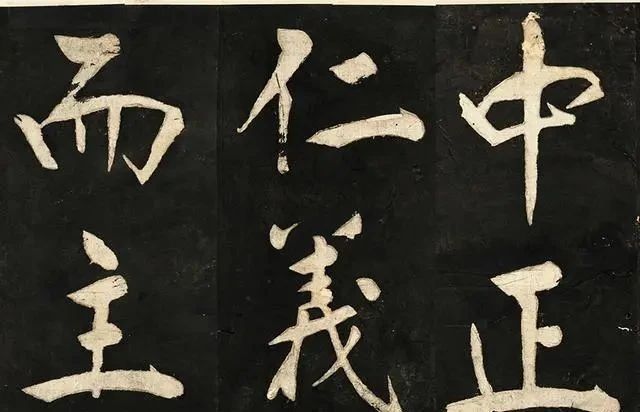 中正
仁義
而主